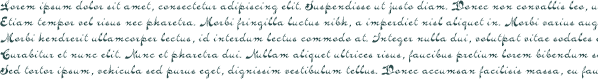 Lorem ipsum dolor sit amet, consectetur adipiscing elit. Suspendisse ut justo diam. Donec non convallis leo, u
Etiam tempor vel risus nec pharetra. Morbi fringilla luctus nibh, a imperdiet nisl aliquet in. Morbi varius aug
Morbi hendrerit ullamcorper lectus, id interdum lectus commodo at. Integer nulla dui, volutpat vitae sodales e
Curabitur et nunc elit. Nunc et pharetra dui. Nullam aliquet ultrices risus, faucibus pretium lorem bibendum s
Sed tortor ipsum, vehicula sed purus eget, dignissim vestibulum tellus. Donec accumsan facilisis massa, eu fau